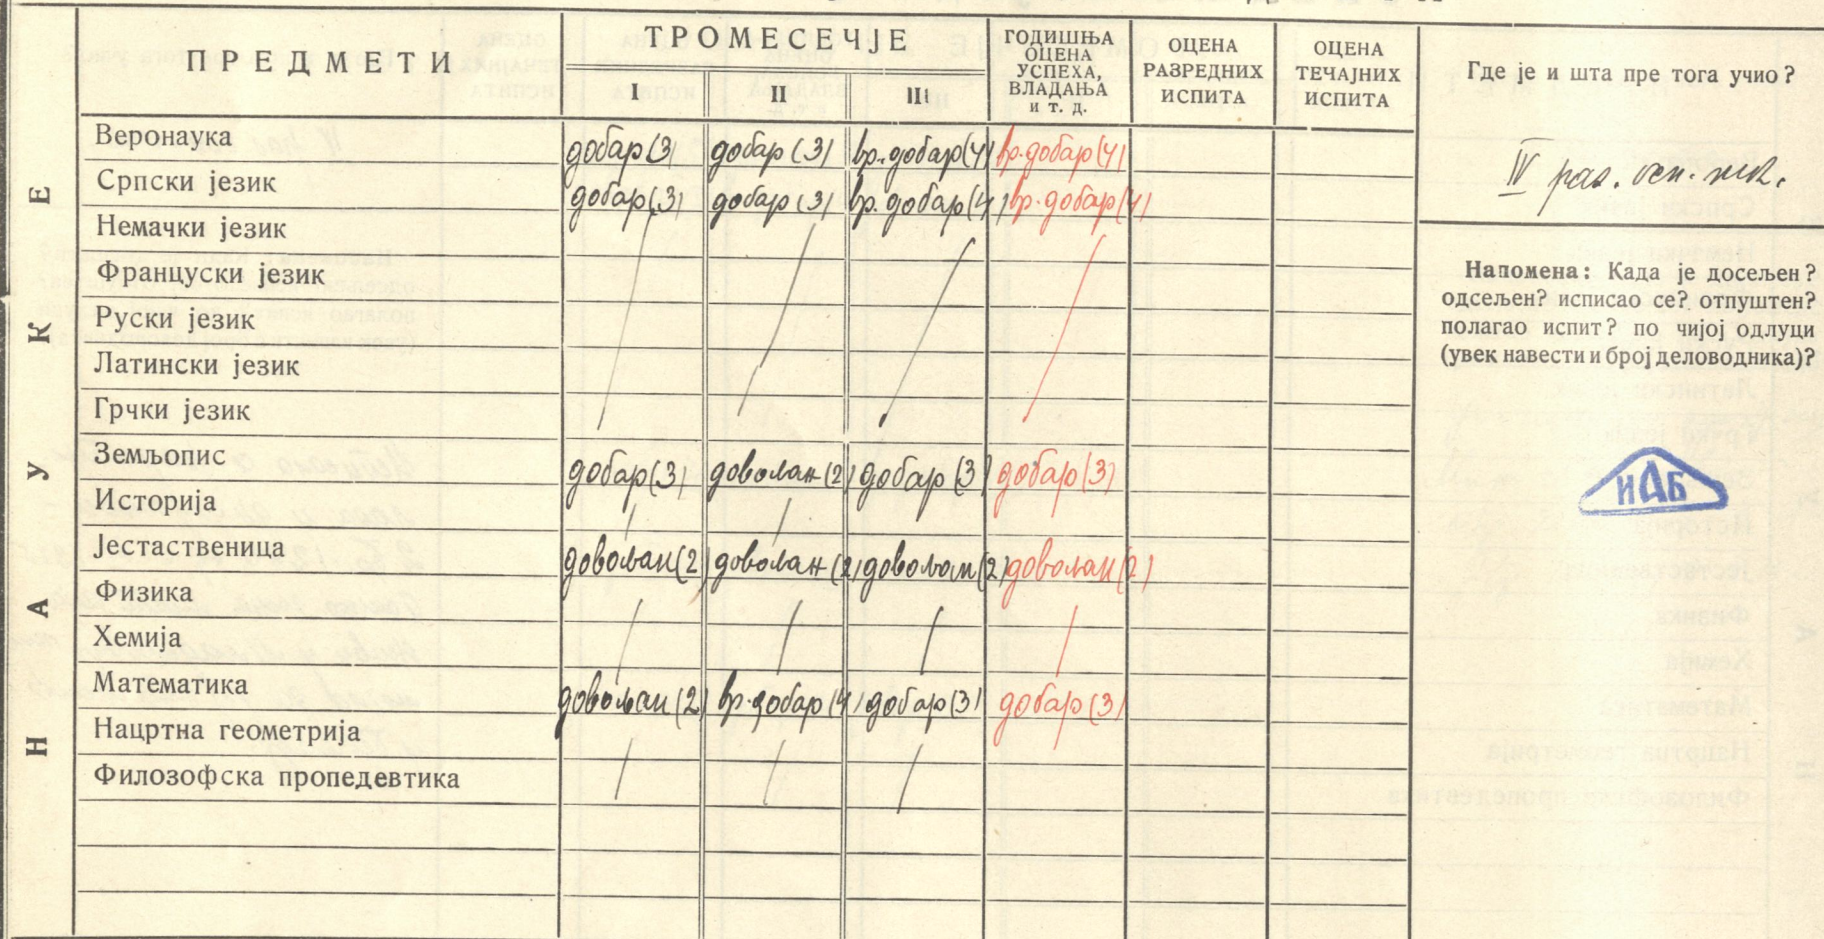 ПРЕДМЕТИ
ТРОМЕСЕЧЈЕ
I II III
ГОДИШЊА
ОЦЕНА
УСПЕХА,
ВЛАДАЊА
и т. д.
ОЦЕНА
РАЗРЕДНИХ
ИСПИТА
ОЦЕНА
ТЕЧАЈНИХ
ИСПИТА
Где је и шта пре тога учио?
НАУКЕ
Веронаука добар (3) добар (3) вр. добар (4) вр. добар (4)
Српски језик добар (3) добар (3) вр. добар (4) вр. добар (4)
Немачки језик
Француски језик
Руски језик
Латински језик
Грчки језик
Земљопис добар (3) довољан (2) добар (3) добар (3)
Историја / /
Јестаственица довољан (2) довољан (2) довољан (2) довољан (2)
Физика
Хемија / / / /
Математика довољан (2) вр. добар (4) добар (3) добар (3)
Нацртна геометрија
Филозофска пропедевтика / / /
IV раз. осн. шк.
Напомена: Када је досељен?
одсељен? исписао се? отпуштен?
полагао испит? по чијој одлуци
(увек навести и број деловодника)?
ИАБ